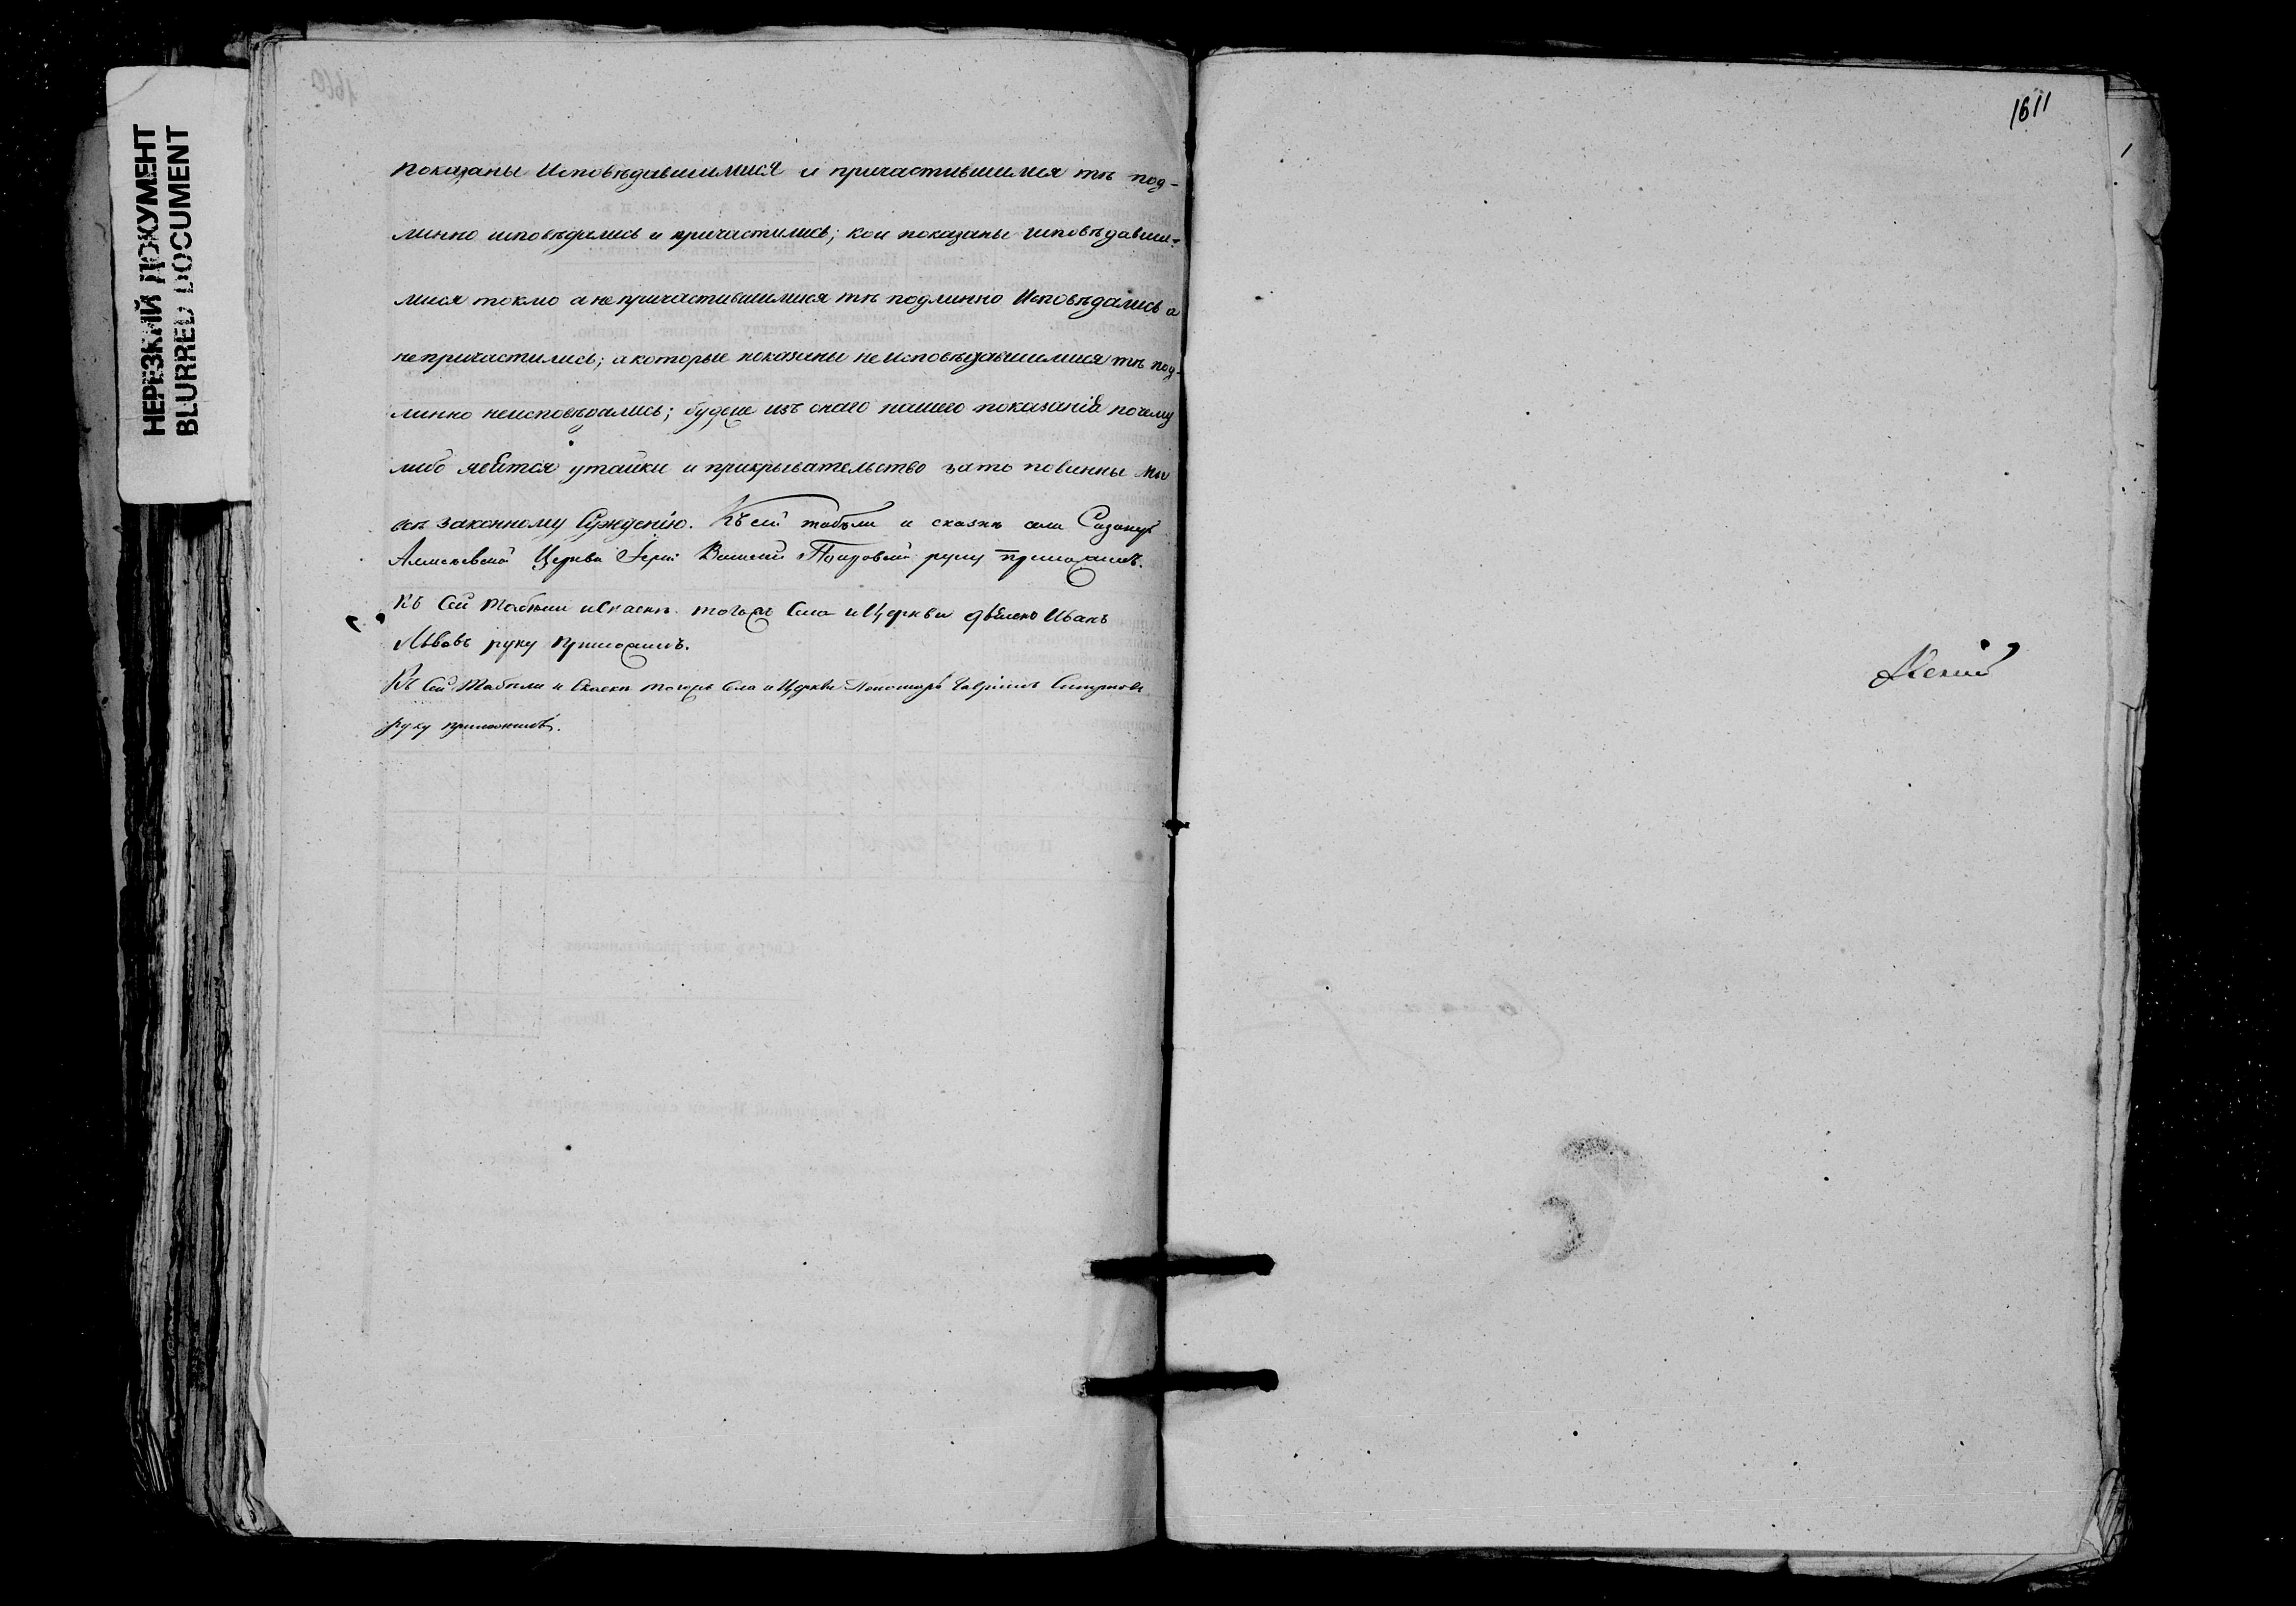 НЕРЕЗКИЙ ДОКУМЕНТ
BLURRED DOCUMENT
показаны Исповѣдавшимися и причастившимися тѣ под-
линно исповѣдались и причастились; кои показаны исповѣдавши-
мися токмо а не причастившимися тѣ подлинно Исповѣдались а
не причастились; а которые показаны не исповѣдавшимися тѣ под-
линно неисповѣдались; будеже изъ онаго нашего показанія почему
либо явится утайки и прикрывательство зато повинны мы
всѣ законному Сужденію. Къ сей табели и сказкѣ села
Церкви Іерей Василий руку приложилъ.
Къ Сей Табели и Сказкѣ тогожъ Села и Церкви дьяконъ Иванъ
Львовъ руку приложилъ.
Къ Сей Табели и Сказкѣ тогожъ Села и Церкви Пономарь Гавриилъ Смирновъ
руку приложилъ.
1611